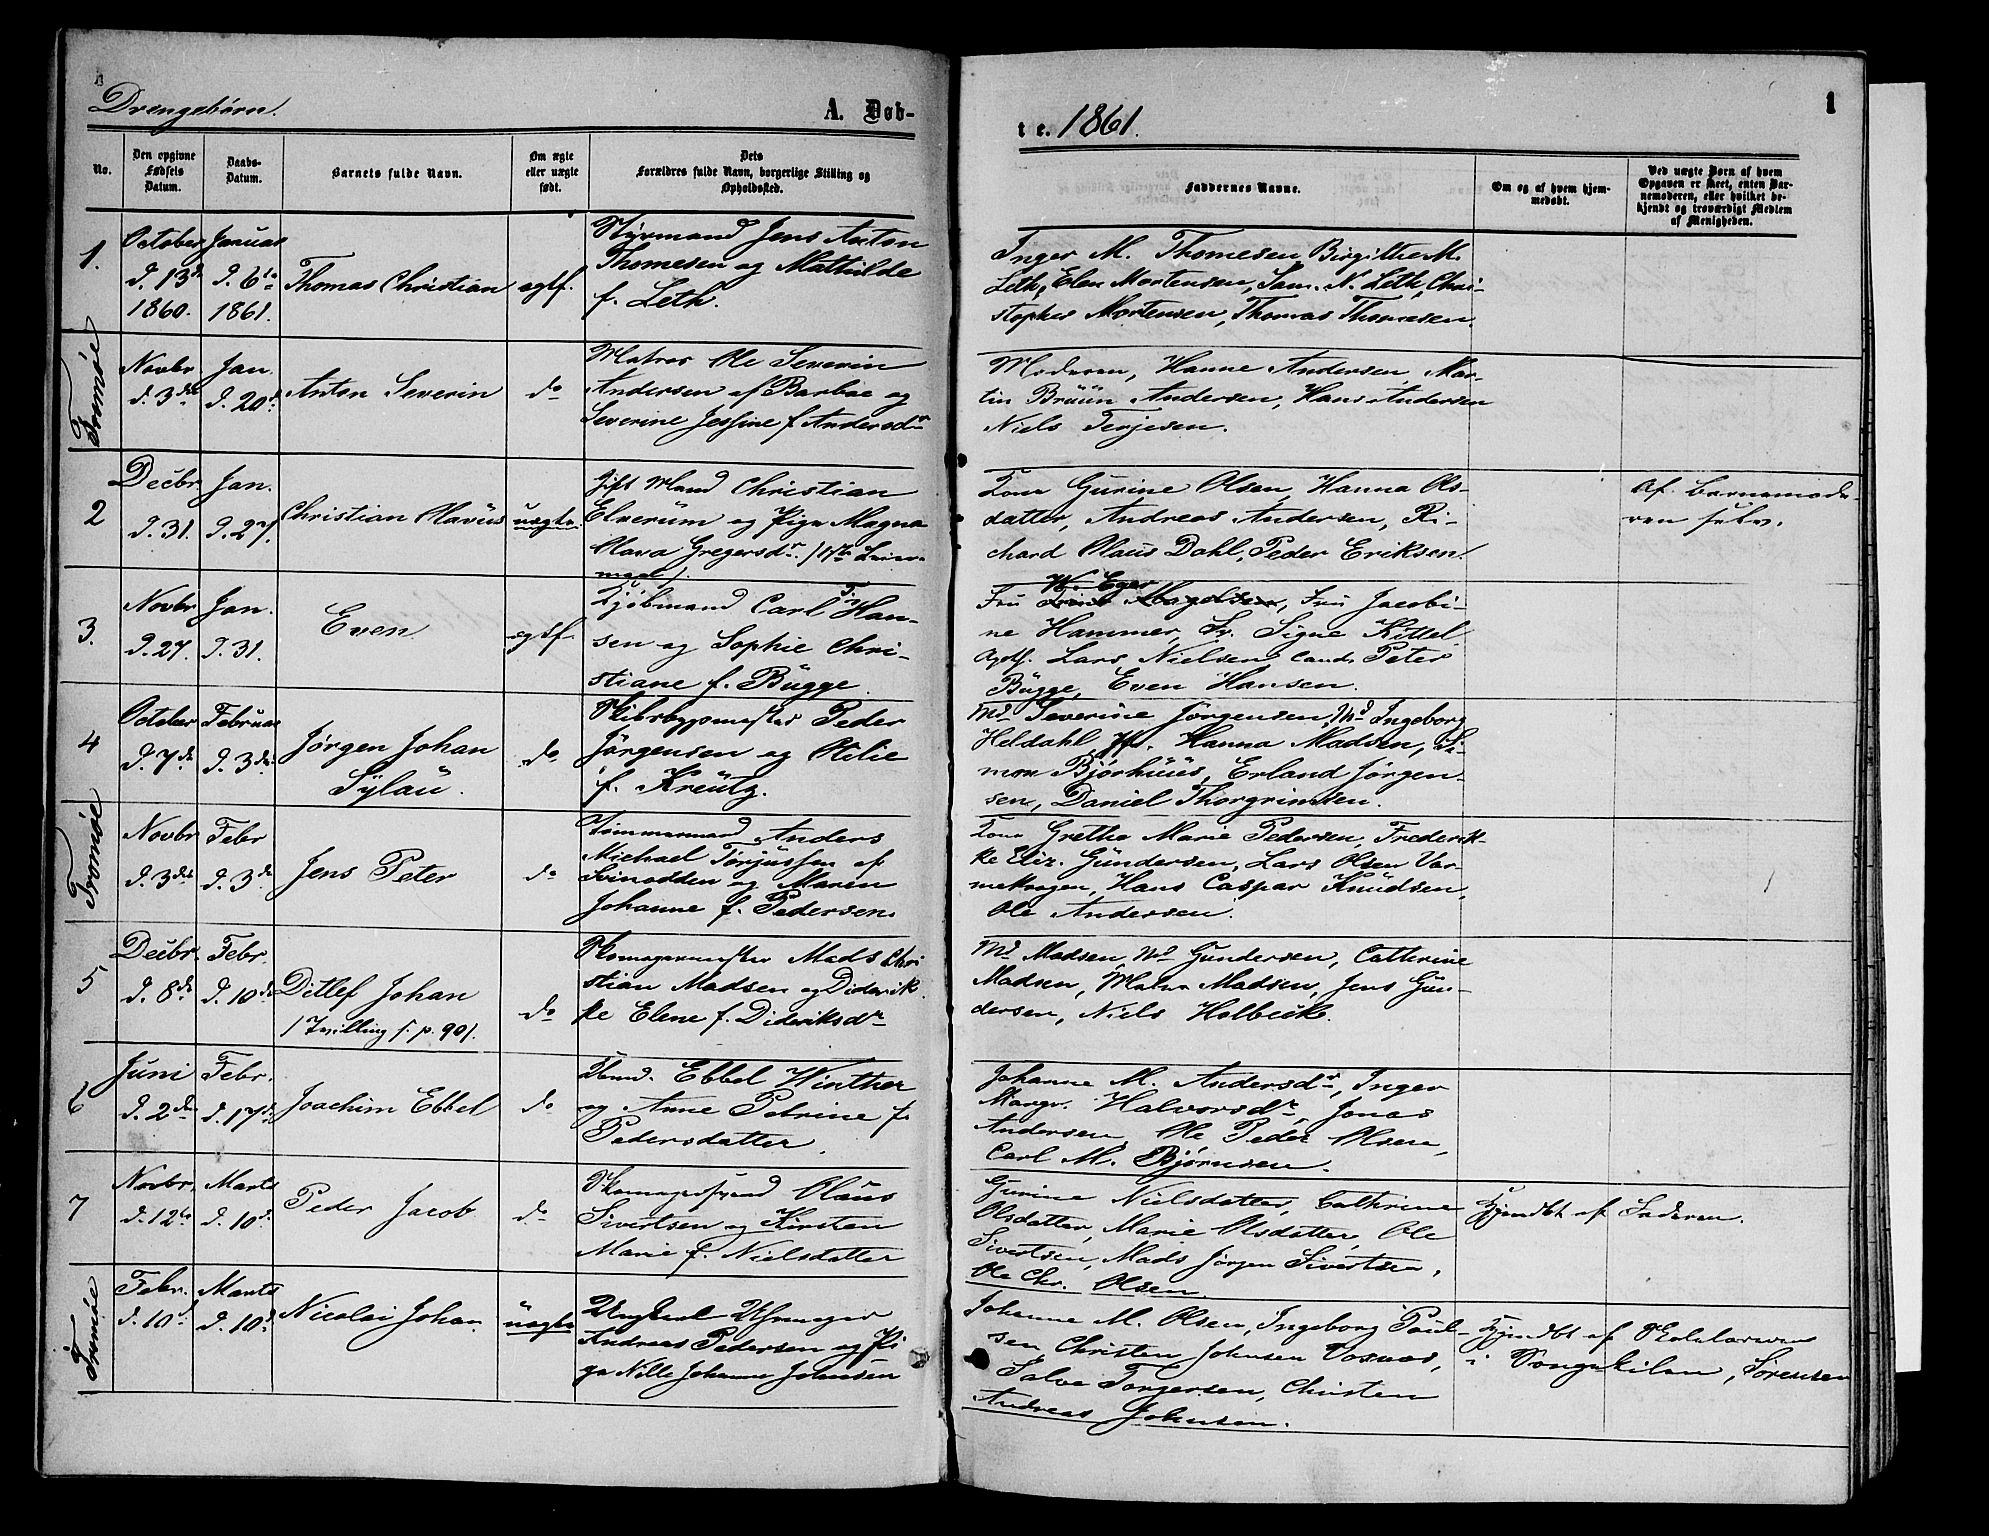 Drengebørn.
A. Døb-
No.
Den opgivne
Fødsels
Datum.
Daabs-
Datum.
Barnets fulde Navn.
Om ægte
eller uægte
født.
Dets
Forældres fulde Navn, borgerlige Stilling og
Opholdssted.
1.
October
d. 13de
1860.
Januar
d. 6te
1861.
Thomas Christian
egtf.
Styrmand Jens Anton
Thomesen og Mathilde
f. Leth.
Tromøe
Novbr
d. 3de
Jan.
d. 20d
Anton Severin
do
Matros Ole Severin
Andersen af Barbae og
Severine Jessine f. Andersdr
2
Decbr.
d. 31.
Jan.
d. 27.
Christian Olavüs
uegte
gift Mand Christian
Elverüm og Pige Magna
Olava Gregersdr.
3.
Novbr
d. 27.
Jan.
d. 31.
Even
egtf.
Kjøbmand Carl Fr. Han-
sen og Sophie Chri-
stiane f. Bügge.
4
October
d. 7de
Februar
d. 3de
Jørgen Johan
Sylaü.
do
Skibsbygmester Peder
Jørgensen og Otilie
f. Kreütz.
Tromøe
Novbr
d. 3de
Febr
d. 3de
Jens Peter
do
Tømmermand Anders
Michael Tørjussen af
Svinodden og Maren
Johanne f. Pedersen.
5
Decbr.
d. 8de
Febr.
d. 10de
Ditlef Johan
/ Tvilling s. p. 90/.
do
Skomagermester Mads Chri
stian Madsen og Diderik-
ke Elene f. Dideriksdr
6
Juni
d. 2de
Febr.
d. 17de
Joachim Ebbel
do
Ebbel Winther
og Anne Petrine f.
Pedersdatter.
7
Novbr.
d. 12te
Marts
d. 10d.
Peder Jacob
do
Skomagersvend Olaüs
Sivertsen og Kirsten
Marie f. Nielsdatter
Tromøe
Febr.
d. 10d
Marts
d. 10d.
Nicolai Johan
üegte
Ungkarl Uhrmager
Andreas Pedersen og Pi
ge Nille Johanne Johnsen
te. 1861.
1
Faddernes Navne.
Om og af hvem hjem-
medøbt.
Ved uægte Børn af hvem
Opgaven er skeet, enten Bar-
nemoderen, eller hvilket be-
kjendt og troværdigt Medlem
af Menigheden.
Inger M. Thomesen Birgithe M.
Leth, Elen Mortensen, Sam. N. Leth, Chri-
stopher Mortensen, Thomas Thomesen.
Moderen, Hanne Andersen, Mar-
tin Brüün Andersen, Hans Andersen
Niels Terjesen.
Kone Gurine Olsen, Hanna Ols-
datter, Andreas Andersen, Ri-
chard Olaus Dahl, Peder Eriksen.
Af Barnemode-
ren selv.
W. Eger
Fru Magelsen, Fru Jacobi-
ne Hammer, Fr. Signe Kittel
Lars Nielsen, Cand. Peter
Bügge, Even Hansen.
Md Severine Jørgensen, Md Ingeborg
Heldahl Jfr. Hanna Madsen, Si-
mon Bjørhüüs, Erland Jørgen-
sen, Daniel Thorgrimsen.
Kone Grethe Marie Pedersen, Frederik-
ke Eliz. Gündersen, Lars Olsen Var-
mekrogen, Hans Caspar Knüdsen,
Ole Andersen.
Md Madsen, Md Gundersen, Cathrine
Madsen, Madsen, Jens Gün-
dersen, Niels Holbeck.
Johanne M. Andersdr, Inger
Margr. Halvorsdr, Jonas
Andersen, Ole Peder Olsen,
Carl M. Bjørnsen.
Gunine Nielsdatter, Cathrine
Olsdatter, Marie Olsdatter, Ole
Sivertsen, Mads Jørgen Sivertsen,
Ole Chr. Olsen.
Hjemdbt af Faderen.
Johanne M. Olsen, Ingeborg Paul-
sen, Christen Johnsen Vosnes,
Salve Torgersen, Christen
Andreas Johnsen.
Hjemdbt af Skolelæreren
i Songekilen, Sørensen